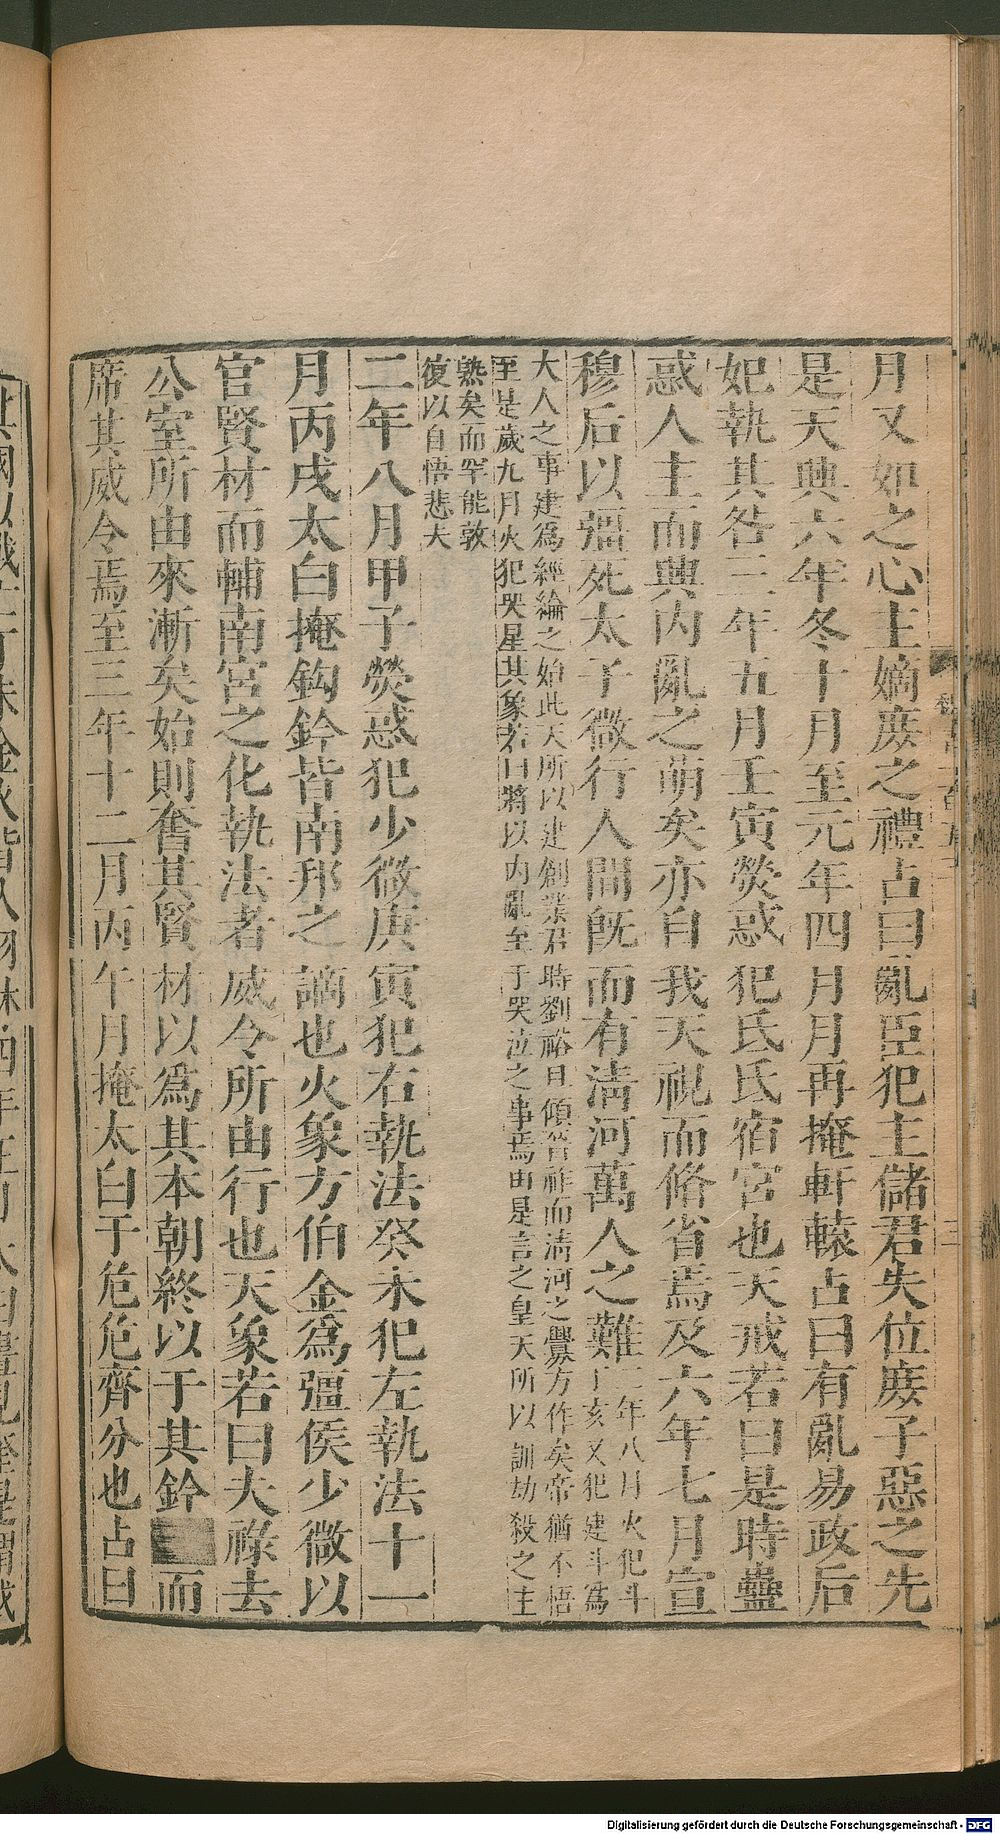 月又如之心主嫡庶之禮占曰亂臣犯主儲君失位庶子惡之先
是天興六年冬十月至元年四月月再掩軒轅占曰有亂易政后
妃執其咎三年五月壬寅熒惑犯氐氐宿宮也天戒若曰是時蠱
惑人主而興內亂之萌矣亦自我天視而脩省焉及六年七月宣
穆后以彊死太子微行人間旣而有淸河萬人之難二年八月火犯斗
丁亥又犯建斗爲
大人之事建爲經綸之始此天所以建創業君時劉裕且傾晉祚而淸河之釁方作矣帝猶不悟
至是歲九月火犯哭星其象若曰將以內亂至于哭泣之事焉由是言之皇天所以訓劫殺之主
㷱矣而罕能敦
復以自悟悲夫
二年八月甲子熒惑犯少微庚寅犯右執法癸未犯左執法十一
月丙戌太白掩鈎鈐皆南邦之謫也火象方伯金爲彊侯少微以
官賢材而輔南宮之化執法者威令所由行也天象若曰夫祿去
公室所由來漸矣始則奮其賢材以爲其本朝終以干其鈐而
席其威令焉至三年十二月丙午月掩太白于危危齊分也占曰
Digitalisierung gefördert durch die Deutsche Forschungsgemeinschaft - DFG